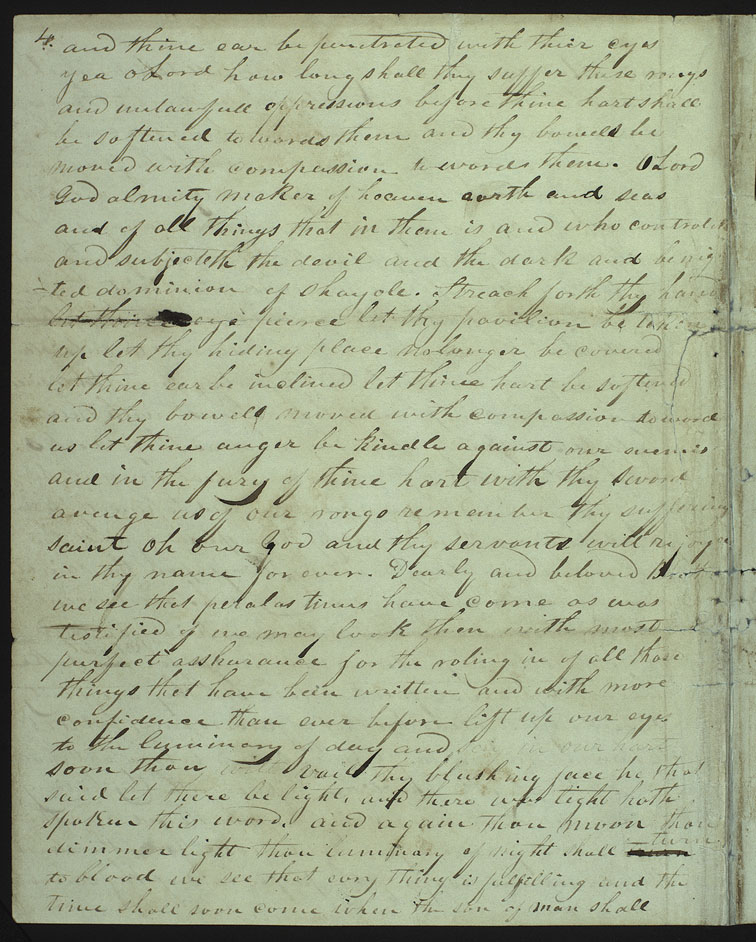 4.
and thine ear be penetrated with their cyes
yea o Lord how long shall thy suffer these rongs
and unlawfull oppressions before thine hart shall
be softened towords them and thy bowels be
moved with compassion towords them. O Lord
God almity maker of heaven earth and seas
and of all things that in them is and who controleth
and subjecteth the devil and the dark and benig
=ted dominion of shayole. Streach forth thy hand
let thine eye pierce let thy pavilion be taken
up let thy hiding place no longer be covered
let thine ear be inclined let thine hart be softened
and thy bowels moved with compassion toword
us let thine anger be kindle against our enemis
and in the fury of thine hart with thy sword
avenge us of our rongs remember thy suffering
saint oh our God and thy servants will rejoyce
in thy name for ever. Dearly and beloved Breth
we see that perelas times have come as was
testified of we may look then with most
purfect asshurance for the roling in of all thos
things that have been written and with more
confidence than ever before lift up our eyes
to the luminary of day and say in our hart
soon thou will vail thy blushing face he that
said let there be light, and there was light hath
spoken this word. and again thou moon thou
dimmer light thou luminary of night shall turn
to blood we see that evry thing is fulfilling and the
time shall soon come when the son of man shall